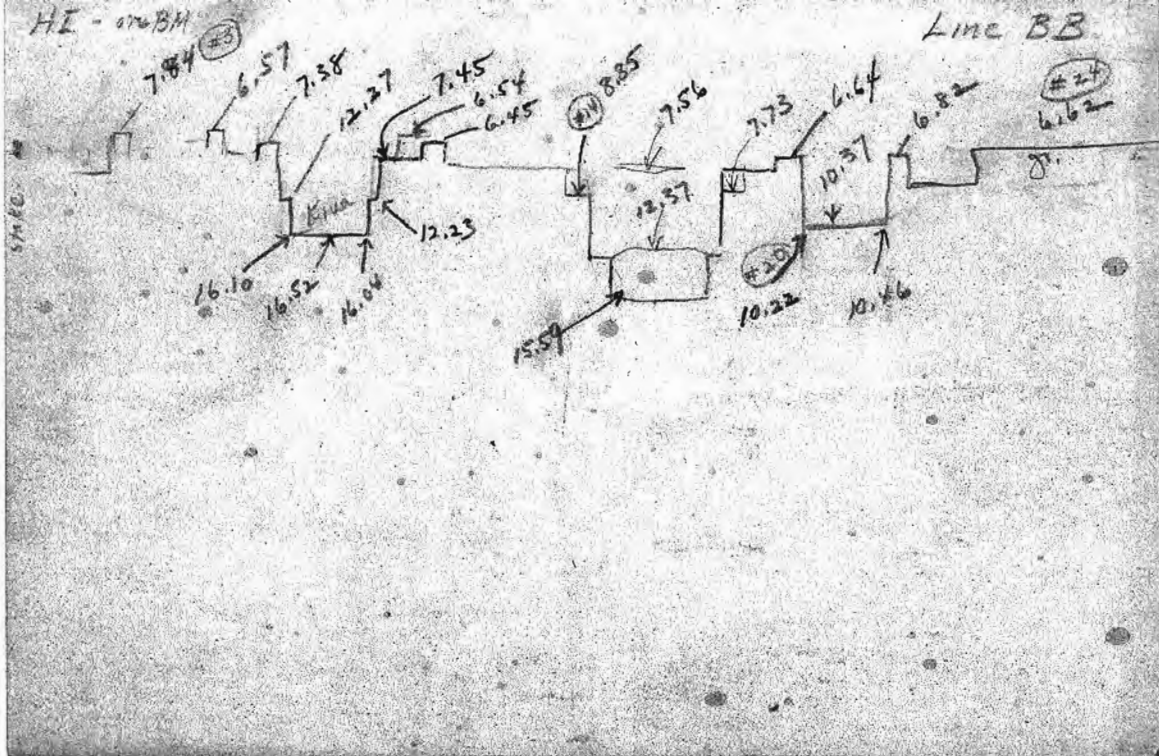 HI - on BM
Line BB
7.84 #3
6.57
7.38
12.27
7.45
6.54
6.45
#14 8.85
7.56
7.73
6.64
10.37
6.82
#24
6.62
gr.
stake
Kiva
12.23
16.10
16.52
16.04
12.37
15.59
#20
10.22
10.46